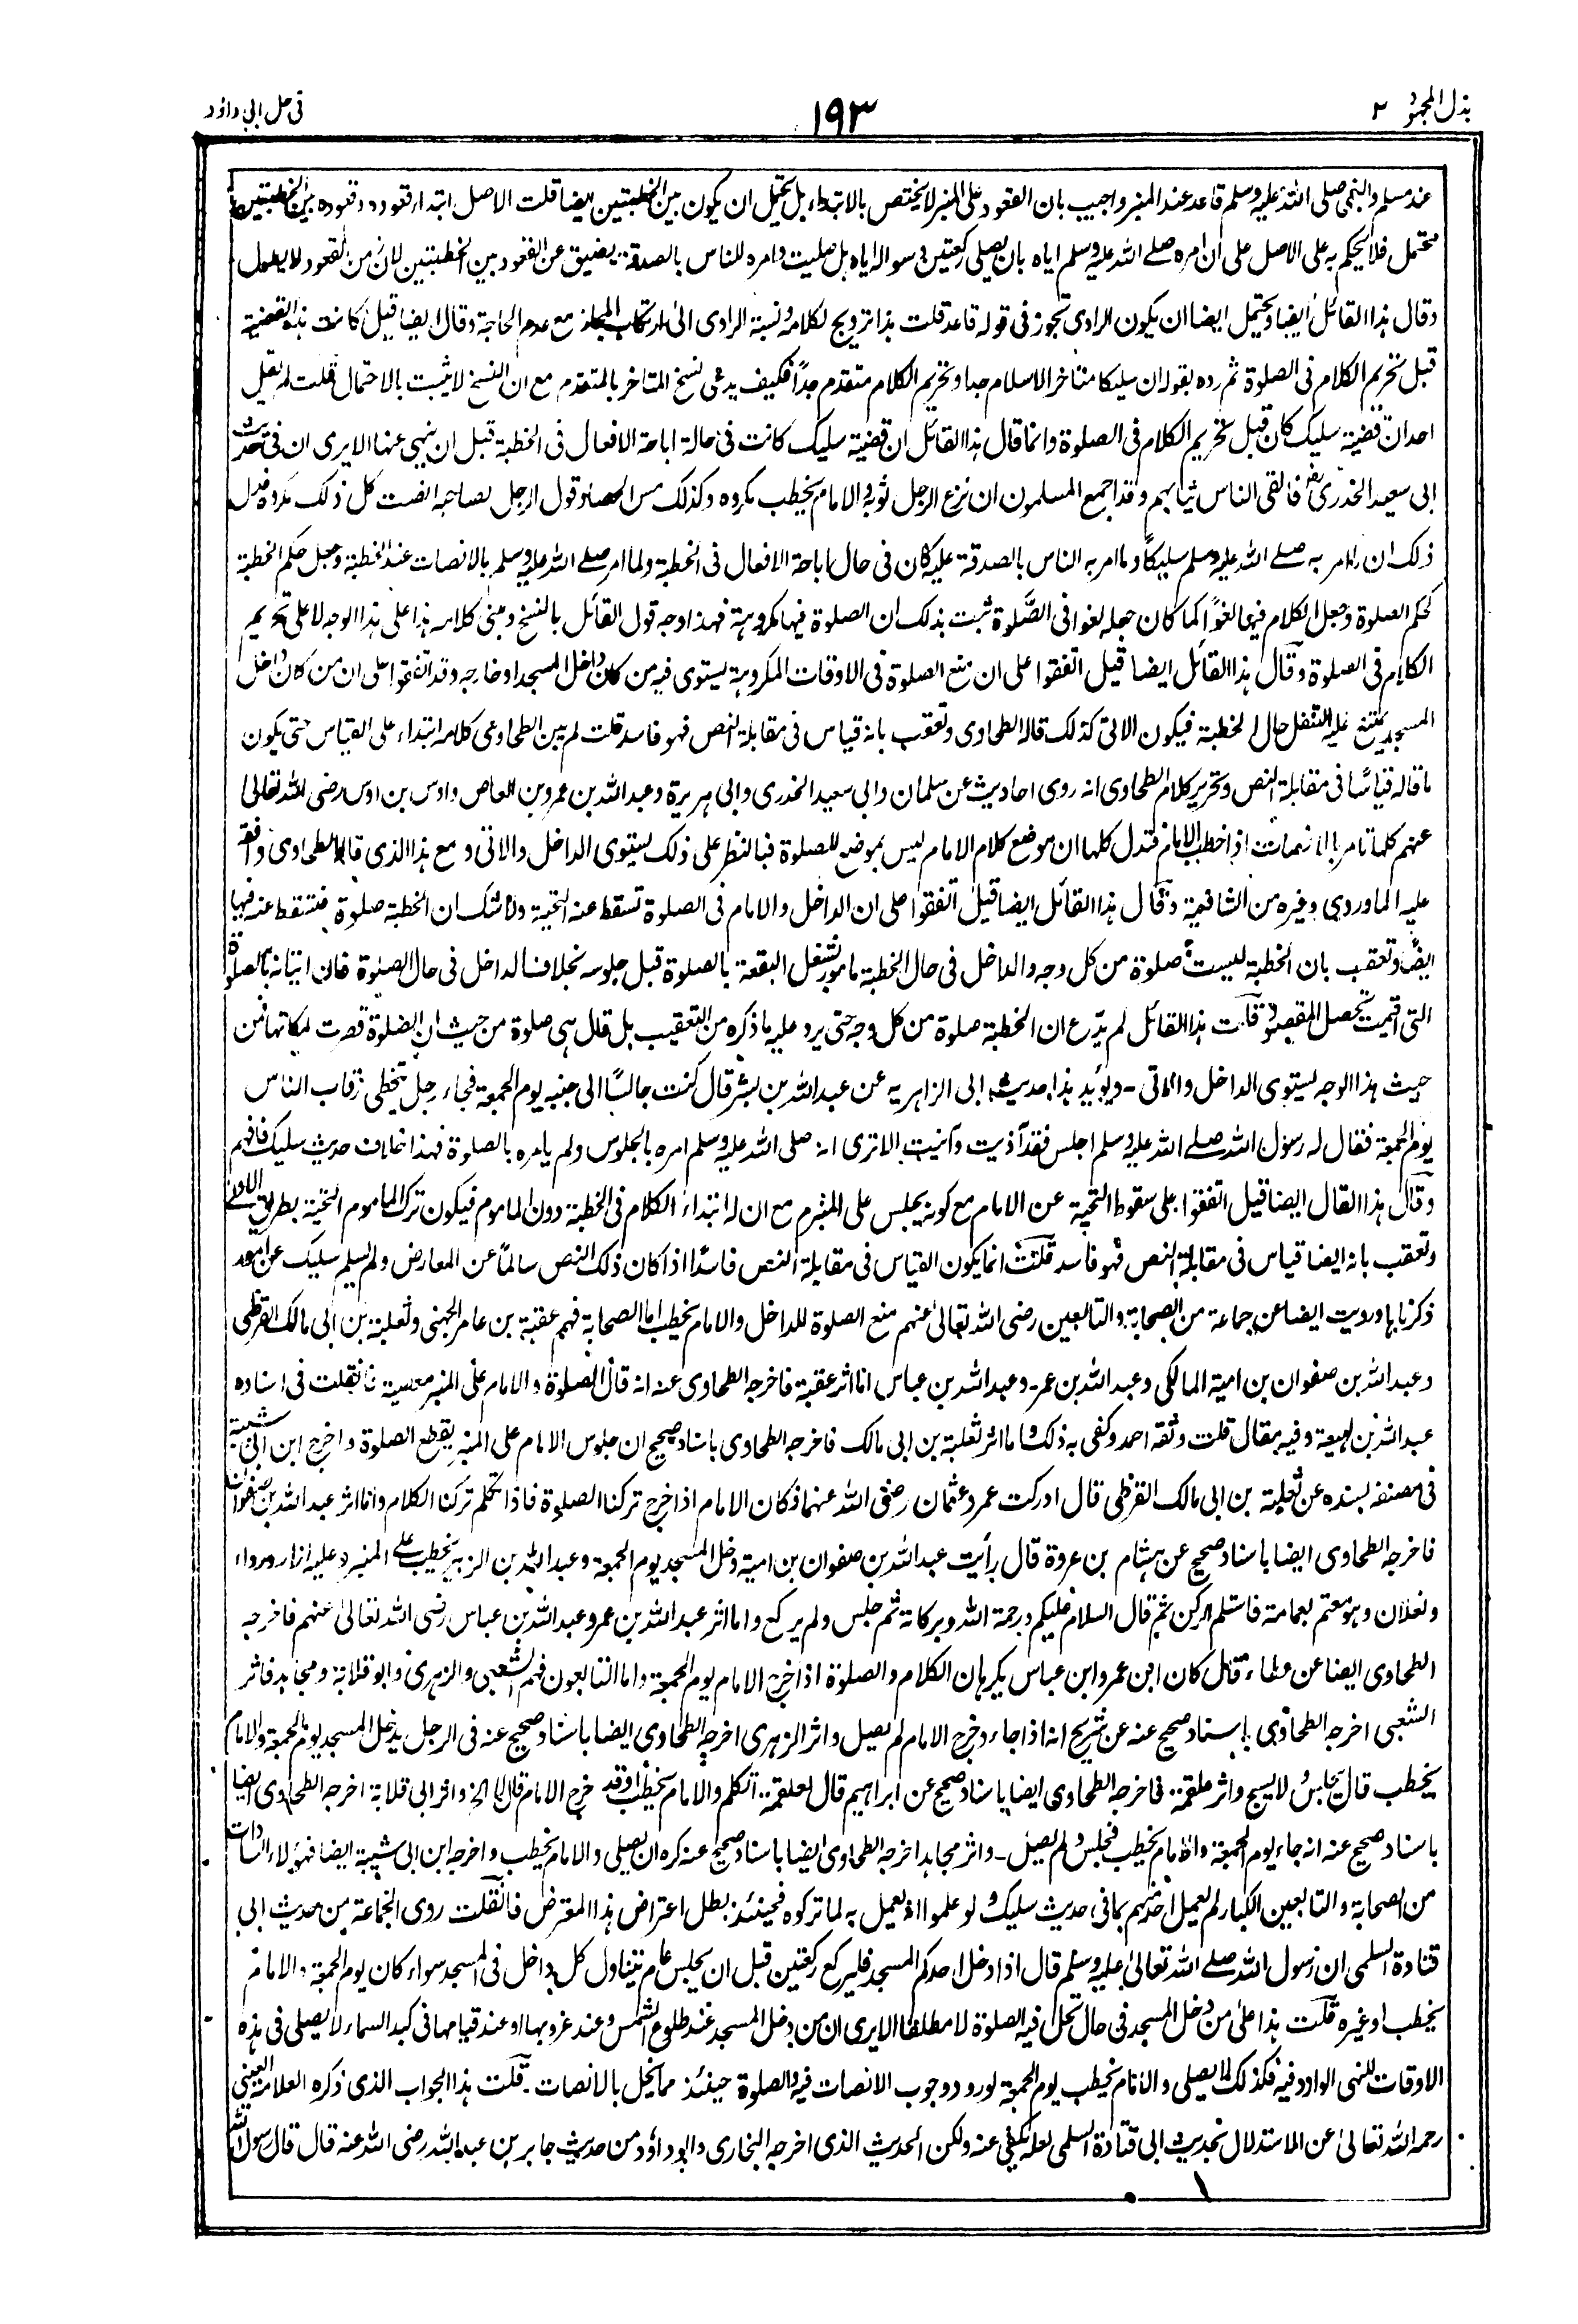 بذل المجهود ٢
١٩٣
فى حل ابى داؤد
عند مسلم والنبى صلى الله عليه وسلم قاعد عند المنبر واجيب بان القعود على المنبر لا يختص بالابتداء بل يحتمل ان يكون بين الخطبتين ايضا قلت الاصل ابتداء قعوده وقعوده بين الخطبتين
محتمل فلا يحكم به على الاصل على ان امره صلے الله عليه وسلم اياه بان يصلى ركعتين وسواله اياه بل صليت وامره للناس بالصدقة يضيق عن القعود بين الخطبتين لان زمن القعود لا يطول
وقال هذا القائل ايضا ويحتمل ايضا ان يكون الراوى تجوز فى قوله قاعد قلت هذا ترويج لكلامه ونسبة الراوى الى ارتكاب المجاز مع عدم الحاجة وقال ايضا قيل كانت هذه القضية
قبل تحريم الكلام فى الصلوة ثم رده بقوله ان سليكا متاخر الاسلام جدا وتحريم الكلام متقدم جدًا فكيف يدعى نسخ المتاخر بالمتقدم مع ان النسخ لا يثبت بالاحتمال قلت لم يقل
احد ان قضية سليك كان قبل تحريم الكلام فى الصلوة وانما قال هذا القائل ان قضية سليك كانت فى حالة اباحة الافعال فى الخطبة قبل ان ينهى عنها الا يرى ان فى حديث
ابى سعيد الخدرى فالقى الناس ثيابهم وقد اجمع المسلمون ان نزع الرجل ثوبه والامام يخطب مكروه وكذلك مس الحصا وقول الرجل لصاحبه انصت كل ذلك مكروه فدل
ذلك ان ما امر به صلے الله عليه وسلم سليكًا وما امر به الناس بالصدقة عليه كان فى حال اباحة الافعال فى الخطبة ولما امر صلے الله عليه وسلم بالانصات عند الخطبة وجعل حكم الخطبة
كحكم الصلوة وجعل الكلام فيها لغوًا كما كان جعله لغوا فى الصَّلوة ثبت بذلك ان الصلوة فيها مكروهة فهذا وجه قول القائل بالنسخ ومبنى كلامه هذا على هذا الوجه لا على تحريم
الكلام فى الصلوة وقال هذا القائل ايضا قيل اتفقوا على ان منع الصلوة فى الاوقات المكروهة يستوى فيه من كان داخل المسجد او خارجه وقد اتفقوا على ان من كان داخل
المسجد يمتنع عليه التنفل حال الخطبة فيكون الاتى كذلك قاله الطحاوى وتعقب بانه قياس فى مقابلة النص فهو فاسد قلت لم يبن الطحاوى كلامه ابتداء على القياس حتى يكون
ما قاله قياسًا فى مقابلة النص وتحرير كلام الطحاوى انه روى احاديث عن سلمان وابى سعيد الخدرى وابى هريرة وعبد الله بن عمرو بن العاص واوس بن اوس رضى الله تعالى
عنهم كلها تامر بالانصات اذا خطب الامام فتدل كلها ان موضع كلام الامام ليس بموضع للصلوة فبالنظر على ذلك يستوى الداخل والاتى ومع هذا الذى قاله الطحاوى وافقه
عليه الماوردى وغيره من الشافعية وقال هذا القائل ايضا قيل اتفقوا على ان الداخل والامام فى الصلوة تسقط عنه التحية ولا شك ان الخطبة صلوة فتسقط عنه فيها
ايضًا وتعقب بان الخطبة ليست صلوة من كل وجه والداخل فى حال الخطبة مامور بشغل البقعة بالصلوة قبل جلوسه بخلاف الداخل فى حال الصلوة فان اتيانه بالصلوة
التى اقيمت تحصل المقصود قلت هذا القائل لم يدّع ان الخطبة صلوة من كل وجه حتى يرد عليه ما ذكره من التعقيب بل قال هى صلوة من حيث ان الصلوة قصرت لمكانها فمن
حيث هذا الوجه يستوى الداخل والاتى - ويؤيد هذا حديث ابى الزاهرية عن عبد الله بن بشر قال كنت جالسًا الى جنبه يوم الجمعة فجاء رجل يتخطى رقاب الناس
يوم الجمعة فقال له رسول الله صلے الله عليه وسلم اجلس فقد آذيت وآنيت الا ترى انه صلى الله عليه وسلم امره بالجلوس ولم يامره بالصلوة فهذا خلاف حديث سليك فافهم
وقال هذا القائل ايضا قيل اتفقوا على سقوط التحية عن الامام مع كونه يجلس على المنبر مع ان له ابتداء الكلام فى الخطبة دون الماموم فيكون ترك الماموم التحية بطريق الاولى
وتعقب بانه ايضا قياس فى مقابلة النص فهو فاسد قلت انما يكون القياس فى مقابلة النص فاسدًا اذا كان ذلك النص سالمًا عن المعارض ولم يسلم سليك عن امور
ذكرناها ورويت ايضا عن جماعة من الصحابة والتابعين رضى الله تعالى عنهم منع الصلوة للداخل والامام يخطب اما الصحابة فهم عقبة بن عامر الجهنى وثعلبة بن ابى مالك القرظى
وعبد الله بن صفوان بن امية المالكى وعبد الله بن عمر - وعبد الله بن عباس اما اثر عقبة فاخرجه الطحاوى عنه انه قال الصلوة والامام على المنبر معصية فان قلت فى اسناده
عبد الله بن لهيعة وفيه مقال قلت وثقه احمد وكفى به ذلك واما اثر ثعلبة بن ابى مالك فاخرجه الطحاوى باسناد صحيح ان جلوس الامام على المنبر يقطع الصلوة واخرج ابن ابى شيبة
فى مصنفه بسنده عن ثعلبة بن ابى مالك القرظى قال ادركت عمر وعثمان رضى الله عنهما فكان الامام اذا خرج تركنا الصلوة فاذا تكلم تركنا الكلام واما اثر عبد الله بن صفوان
فاخرجه الطحاوى ايضا باسناد صحيح عن هشام بن عروة قال رأيت عبد الله بن صفوان بن امية دخل المسجد يوم الجمعة وعبد الله بن الزبير يخطب على المنبر وعليه ازار ورداء
ونعلان وهو معتم بعمامة فاستلم الركن ثم قال السلام عليكم ورحمة الله وبركاته ثم جلس ولم يركع واما اثر عبد الله بن عمر وعبد الله بن عباس رضى الله تعالى عنهم فاخرجه
الطحاوى ايضا عن عطاء قال كان ابن عمر وابن عباس يكرهان الكلام والصلوة اذا خرج الامام يوم الجمعة واما التابعون فهم الشعبى والزهرى وابو قلابة ومجاهد فاثر
الشعبى اخرجه الطحاوى باسناد صحيح عنه عن شريح انه اذا جاء وخرج الامام لم يصل واثر الزهرى اخرجه الطحاوى ايضا باسناد صحيح عنه فى الرجل يدخل المسجد يوم الجمعة والامام
يخطب قال يجلس ولا يسبح واثر علقمة فاخرجه الطحاوى ايضا باسناد صحيح عن ابراهيم قال لعلقمة اتكلم والامام يخطب وقد خرج الامام قال لا الخ واثر ابى قلابة اخرجه الطحاوى ايضا
باسناد صحيح عنه انه جاء يوم الجمعة والامام يخطب فجلس ولم يصل - واثر مجاهد اخرجه الطحاوى ايضا باسناد صحيح عنه كره ان يصلى والامام يخطب واخرجه ابن ابى شيبة ايضا فهؤلاء السادات
من الصحابة والتابعين الكبار لم يعمل احد منهم بما فى حديث سليك ولو علموا انه يعمل به لما تركوه فحينئذ بطل اعتراض هذا المعترض فان قلت روى الجماعة من حديث ابى
قتادة السلمى ان رسول الله صلے الله تعالى عليه وسلم قال اذا دخل احدكم المسجد فليركع ركعتين قبل ان يجلس عام يتناول كل داخل فى المسجد سواء كان يوم الجمعة والامام
يخطب او غيره قلت هذا على من دخل المسجد فى حال تحل فيه الصلوة لا مطلقا الا يرى ان من دخل المسجد عند طلوع الشمس وعند غروبها او عند قيامها فى كبد السماء لا يصلى فى هذه
الاوقات للنهى الوارد فيه فكذلك لا يصلى والامام يخطب يوم الجمعة لورود وجوب الانصات فيه والصلوة حينئذ مما يخل بالانصات - قلت هذا الجواب الذى ذكره العلامة العينى
رحمه الله تعالى عن الاستدلال بحديث ابى قتادة السلمى لعله يكفى عنه ولكن الحديث الذى اخرجه البخارى وابو داؤد من حديث جابر بن عبد الله رضى الله عنه قال قال رسول الله